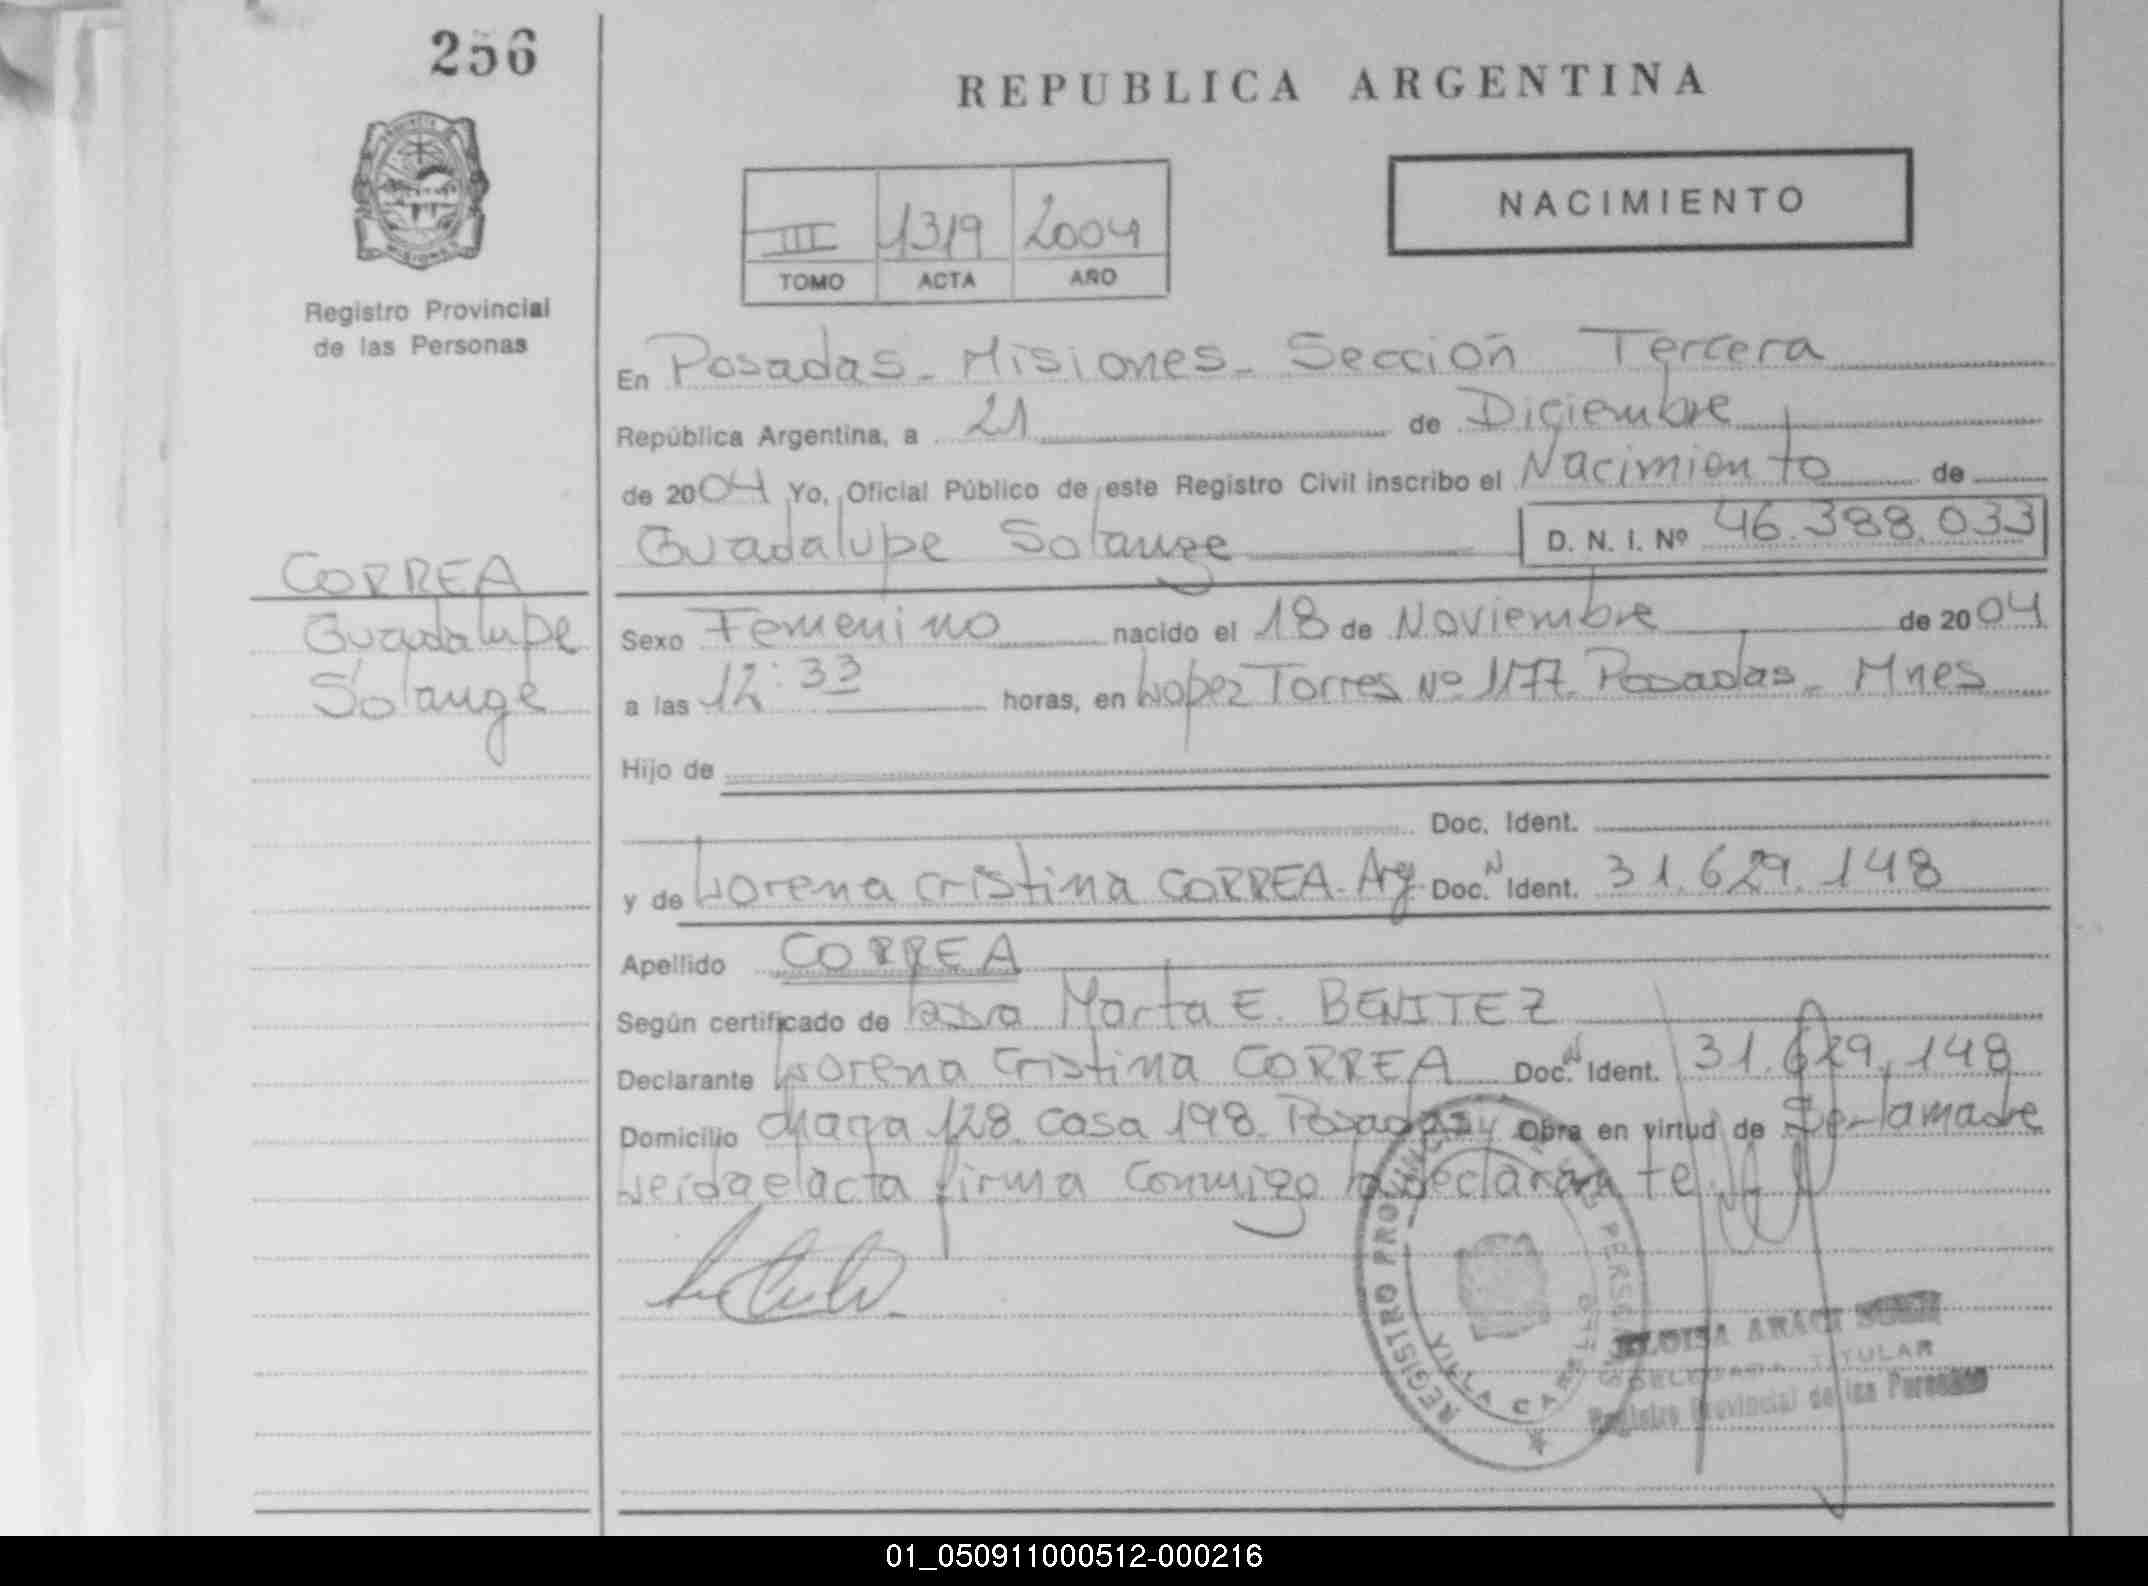 256
REPUBLICA ARGENTINA
NACIMIENTO
III 1319 2004
TOMO ACTA AÑO
Registro Provincial
de las Personas
En Posadas - Misiones - Sección Tercera
República Argentina, a 21 de Diciembre
de 2004 Yo, Oficial Público de este Registro Civil inscribo el Nacimiento de
Guadalupe Solange D. N. I. Nº 46.388.033
CORREA
Guadalupe
Solange
Sexo Femenino nacido el 18 de Noviembre de 2004
a las 12:33 horas, en Lopez Torres Nº 1177 Posadas - Mnes
Hijo de
Doc. Ident.
y de Lorena Cristina CORREA - Arg. Doc. N Ident. 31.629.148
Apellido CORREA
Según certificado de Marta E. BENITEZ
Declarante Lorena Cristina CORREA Doc. N Ident. 31.629.148
Domicilio chaqra 128. Casa 198. Posadas y Obra en virtud de Ser la madre
Leida el acta firma conmigo la declarante.
REGISTRO PROVINCIAL DE LAS PERSONAS
VILLA CABELLO
ELOISA ARACI
DELEGADA TITULAR
Registro Provincial de las Personas
01_050911000512-000216